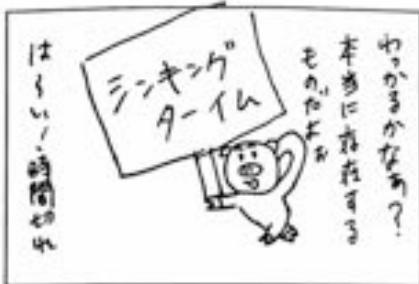 わっかるかなぁ?
本当に存在する
ものだよぉ
シンキング
ターイム
は〜い!時間切れ